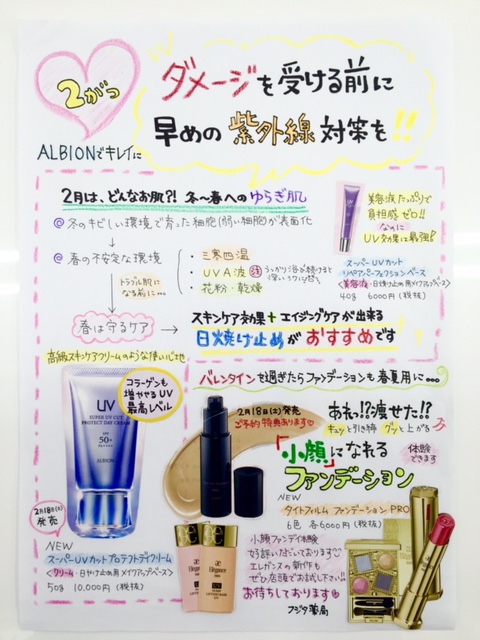 2がつ
ダメージを受ける前に
早めの紫外線対策を!!
ALBIONでキレイに
2月は、どんなお肌?! 冬〜春へのゆらぎ肌
@冬のキビしい環境で育った細胞(弱い細胞)が表面化
@春の不安定な環境
・三寒四温
・UVA波
・花粉・乾燥
トラブル肌になる前に…
春は守るケア
スキンケア効果+エイジングケアが出来る
日焼け止めがおすすめです
美容液たっぷりで
負担感ゼロ!!
なのに
UV効果は最強!!
スーパーUVカット
リペアパーフェクションベース
<美容液・日焼け止め用メイクアップベース>
40g 6000円(税抜)
高級スキンケアクリームのような使い心地
コラーゲンも
増やせるUV
最高レベル
UV
SUPER UV CUT
PROTECT DAY CREAM
SPF
50+
PA++++
ALBION
2月18日(土)
発売
NEW
スーパーUVカットプロテクトデイクリーム
<クリーム・日やけ止め用メイクアップベース>
50g 10,000円(税抜)
バレンタインを過ぎたらファンデーションも春夏用に…
2月18日(土)発売
ご予約特典あります♡
あれっ!?痩せた!?
キュッと引き締 グッと上がる
「小顔」になれる
体験できます
ファンデーション
NEW
タイトフィルム ファンデーション PRO
6色 各6000円(税抜)
小顔ファンデ体験
好評いただいております♡
エレガンスの新作も
ぜひ店頭でお試し下さい!!
お待ちしております♡
フジタ薬局
Elégance
Elégance